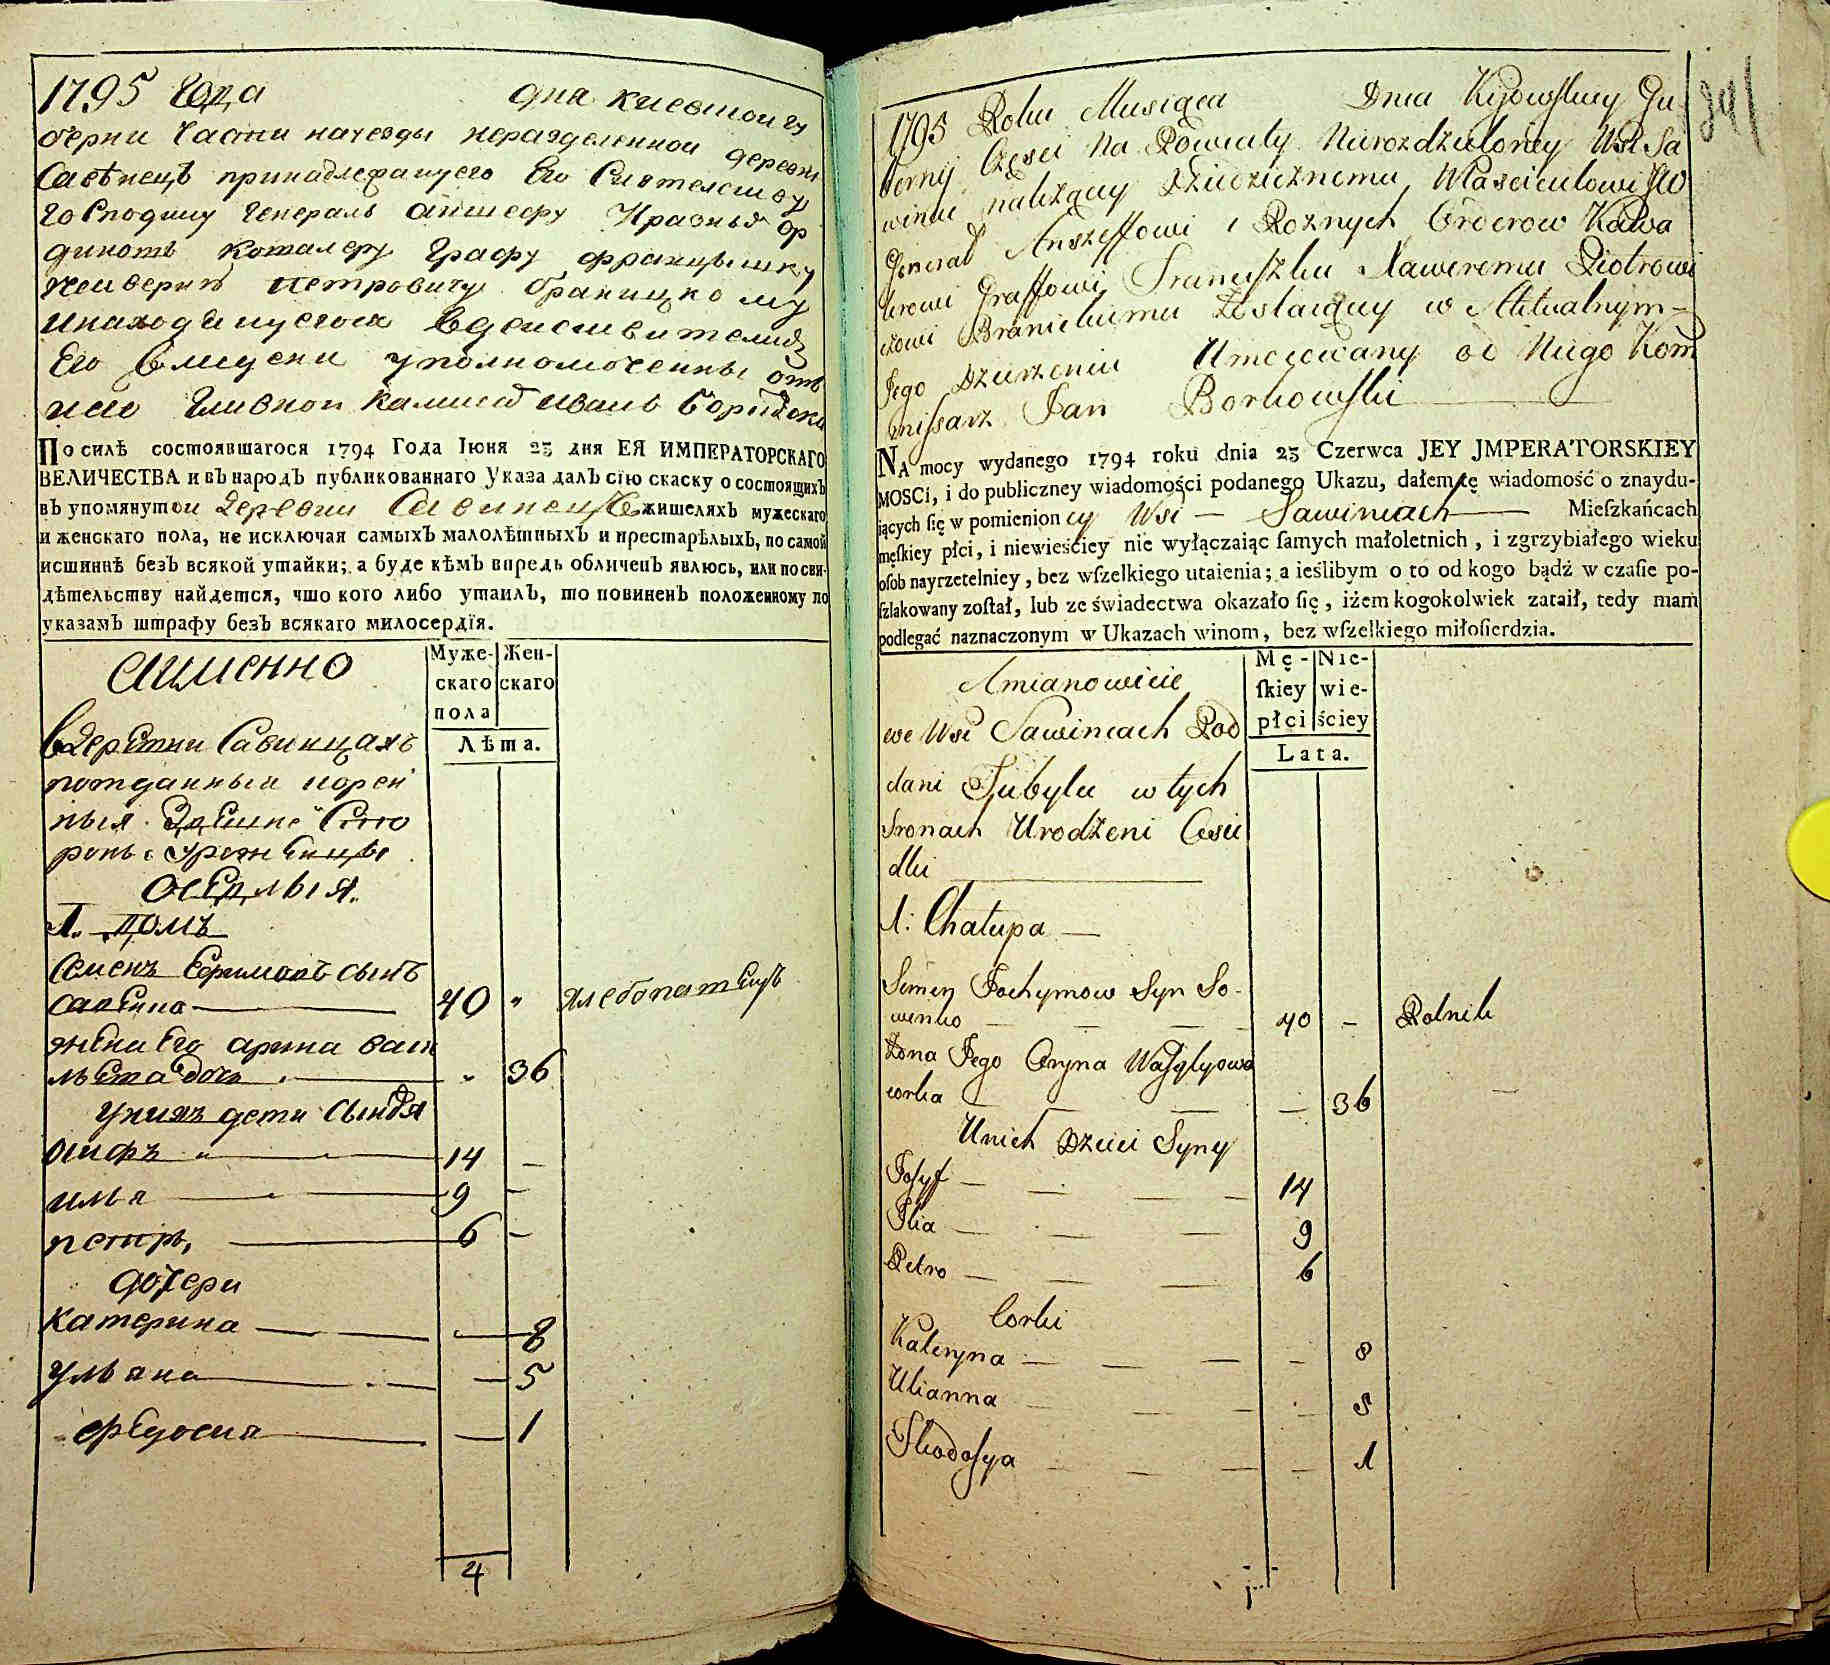 1795 Года дня киевской гу
берни Части науезды неразделенной деревни
Савѣнецъ принадлежащего Его Сиятелству
Господину Генералъ аншефу
Кавалеру Графу францишку
Петровичу браницкому
Его уполномоченны отъ
него Главной Камисаръ иванъ борковски
По силѣ состоявшагося 1794 Года Іюня 23 дня ЕЯ ИМПЕРАТОРСКАГО
ВЕЛИЧЕСТВА и въ народъ публикованнаго Указа далъ сію скаску о состоящихъ
въ упомянутой деревни Савинцахъ жителяхъ мужескаго
и женскаго пола, не исключая самыхъ малолѣтныхъ и престарѣлыхъ, по самой
истиннѣ безъ всякой утайки; а буде кѣмъ впредь обличенъ явлюсь, или по сви-
дѣтельству найдется, что кого либо утаилъ, то повиненъ положенному по
указамъ штрафу безъ всякаго милосердїя.
аименно
Муже- Жен-
скаго скаго
пола
Лѣта.
вдеревни Савинцахъ
подданныи корен
ныя здешне Сто
роны урожденцы
оседлыя.
1. домъ
Семенъ Ефимовъ сынъ
савенко 40 „ хлебопашецъ
жена Его арина васи
льева дочь „ 36
уних дети сыновя
осифъ 14 —
илья 9 —
петръ, 6 —
дочери
катерина 8
ульяна — 5
федосия — 1
4
341
1795 Roku Miesiąca Dnia Kijowskiey Gu
bernij Częsci Na Powiaty Nierozdzieloney Wsi Sa
winiec należącey Dziedzicznemu Włascicielowi JW
Generał Anszeffowi i Roznych Orderow Kawa
lerowi Graffowi Franciszku Xaweremu Piotrowi
czowi Branickiemu Zostaiącey w Aktualnym
Jego Dzierzeniu Umocowany od Niego Kom
missarz Jan Borkowski
NA mocy wydanego 1794 roku dnia 23 Czerwca JEY JMPERATORSKIEY
MOSCi, i do publiczney wiadomości podanego Ukazu, dałem tę wiadomość o znaydu-
iących ſię w pomienioney Wsi — Sawincach — Mieſzkańcach
męſkiey płci, i niewieściey nie wyłączaiąc ſamych małoletnich, i zgrzybiałego wieku
oſob nayrzetelniey, bez wſzelkiego utaienia; a ieślibym o to od kogo bądź w czaſie po-
ſzlakowany zoſtał, lub ze świadectwa okazało ſię, iżem kogokolwiek zataił, tedy mam
podlegać naznaczonym w Ukazach winom, bez wſzelkiego miłoſierdzia.
Amianowicie
Mę- Nie-
ſkiey wie-
płci ściey
Lata.
we Wsi Sawincach Pod
dani Tubylcy w tych
Stronach Urodzeni Osie
dli
1: Chałupa —
Semen Jochymow Syn So-
wenko 40 — Rolnik
Zona Jego Oryna Wasylyowa
corka — 36
Unich Dzieci Syny
Josyf — 14
Ilia — 9
Petro — 6
Corki
Kateryna — 8
Ulianna — 5
Fhodosya — 1